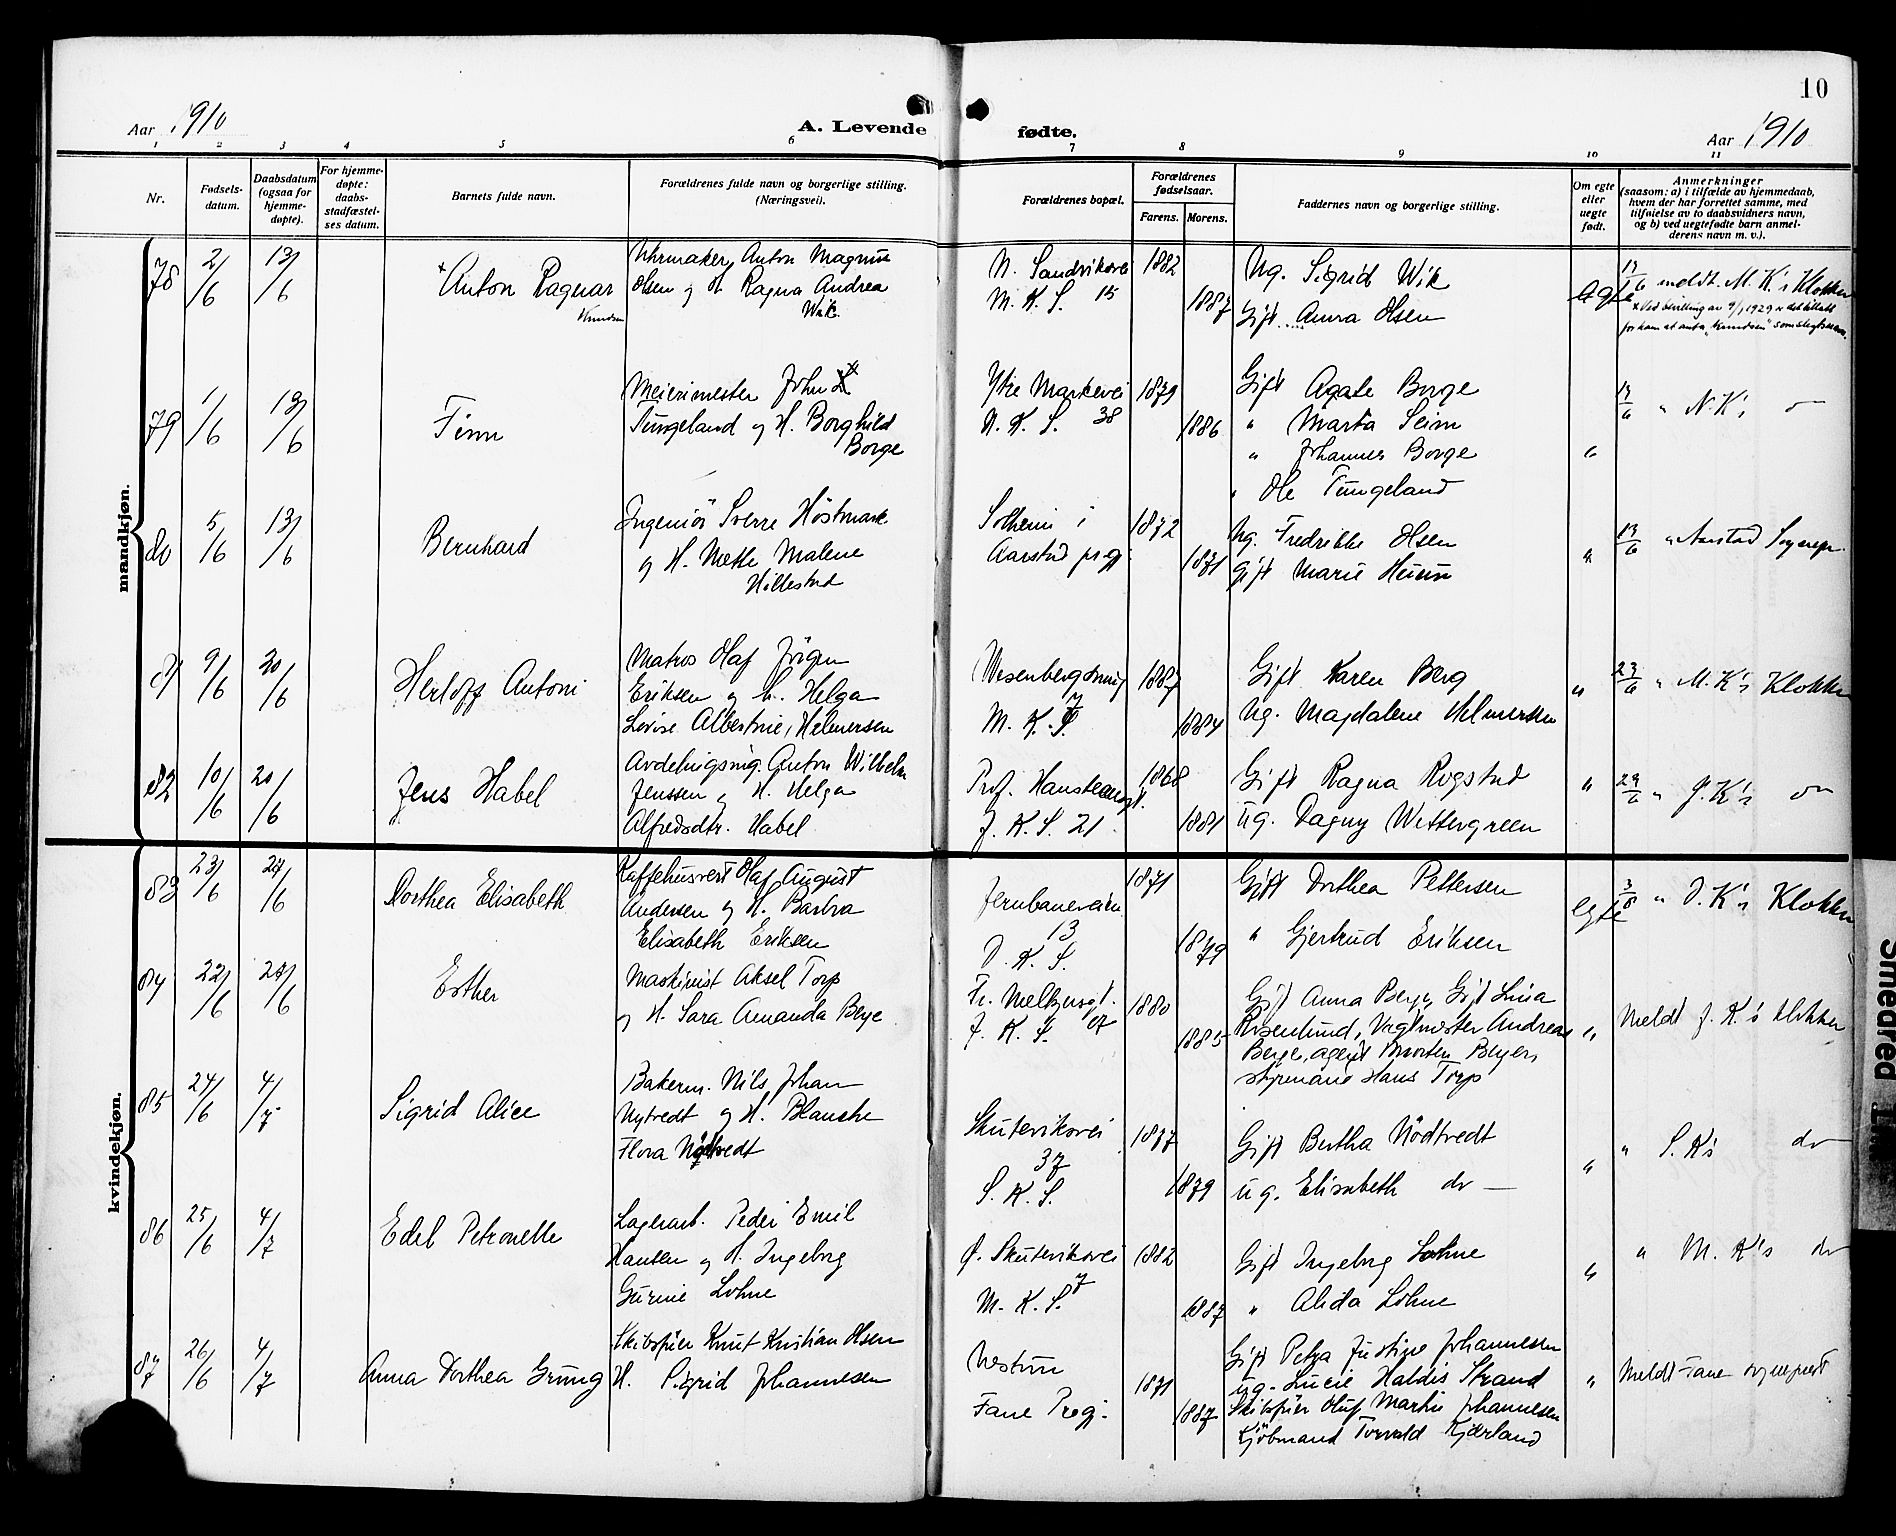 10
Aar 1910
A. Levende fødte.
Aar 1910
1 2 3 4 5 6 7 8 9 10 11
Nr.
Fødsels-
datum.
Daabsdatum
(ogsaa for
hjemme-
døpte).
For hjemme-
døpte:
daabs-
stadfæstel-
ses datum.
Barnets fulde navn.
Forældrenes fulde navn og borgerlige stilling.
(Næringsvei).
Forældrenes bopæl.
Forældrenes
fødselsaar.
Farens. Morens.
Faddernes navn og borgerlige stilling.
Om egte
eller
uegte
født.
Anmerkninger
(saasom: a) i tilfælde av hjemmedaab,
hvem der har forrettet samme, med
tilføielse av to daabsvidners navn,
og b) ved uegtefødte barn anmel-
derens navn m. v.).
mandkjøn.
78 2/6 13/6
* Anton Ragnar
Knudsen
Uhrmaker Anton Magnus
Olsen og H. Ragna Andrea
Wik
N. Sandviksvei
M. K. S. 15
1882
1887
Ug. Sigrid Wik
Gift Anna Olsen
egte
13/6 meldt. M. K's Klokker
* Ved bevilling av 9/1 1929 er det tillatt
for ham at anta "Knudsen" som slegtsnavn.
79 1/6 13/6
Finn
Meierimester John
Tungeland og H. Borghild
Borge
Ytre Markevei
N. K. S. 38
1879
1886
Gift Agate Borge
" Marta Seim
" Johannes Borge
" Ole Tungeland
"
13/6 " N. K's do
80 5/6 13/6
Bernhard
Ingeniör Sverre Höstmark
og H. Mette Malene
Hillestad
Solheim i
Aarstad prgj.
1872
1871
Ug. Fredrikke Olsen
Gift Marie
"
13/6 " Aarstad Sognepr.
81 9/6 20/6
Herloff Antoni
Matros Olaf Jörgen
Eriksen og H. Helga
Lovise Albertine Helmersen
Wesenbergsmug
M. K. S. 7
1887
1884
Gift Karen Berg
Ug. Magdalene Helmersen
"
23/6 " M. K's Klokker
82 10/6 20/6
Jens Habel
Avdelingsing. Anton Wilhelm
Jenssen og H. Helga
Alfredsdtr. Habel
Prof. Hansteensgt.
J. K. S. 21.
1868
1881
Gift Ragna Rogstad
ug. Dagny Wettergreen
"
29/6 " J. K's do
kvindekjøn.
83 23/6 27/6
Dorthea Elisabeth
Kaffehusvert Olaf August
Andersen og H. Barbra
Elisabeth Eriksen
Jernbaneveien
13
D. K. S.
1871
1879
Gift Dorthea Pettersen
" Gjertrud Eriksen
egte
3/8 " D. K's Klokker
84 22/6 28/6
Esther
Maskinist Aksel Torp
og H. Sara Amanda Berge
Fr. Meltzersgt.
J. K. S.
1880
1885
Gift Anna Berge, Gift Lina
Rosenlund, Vagtmester Andreas
Berge, agent Morten Beyer,
styrmand Hans Torp
"
Meldt J. K.'s klokker
85 24/6 4/7
Sigrid Alice
Bakerm. Nils Johan
Nytvedt og H. Blanche
Flora
Skuteviksvei
37
S. K. S.
1877
1879
Gift Bertha Nödtvedt
ug. Elisabeth do —
"
" S. K's do
86 25/6 4/7
Edel Petronelle
Lagerarb. Peder Emil
Hansen og H. Ingeborg
Gurine Lohne
Ø. Skuteviksvei
M. K. S. 7
1882
1887
Gift Ingeborg Lohne
" Alida Lohne
"
" M. K's do
87 26/6 4/7
Anna Dorthea Grung
Skibsfører Knut Kristian Olsen
H. Sigrid Johannesen
Nestun
Fane Pregj.
1871
1887
Gift Petra Justine Johannesen
ug. Lucie Haldis Strand
Skibsfører Oluf Martin Johannesen
Kjöbmand Torvald Kjærland
"
Meldt Fane sogneprest
Smedred